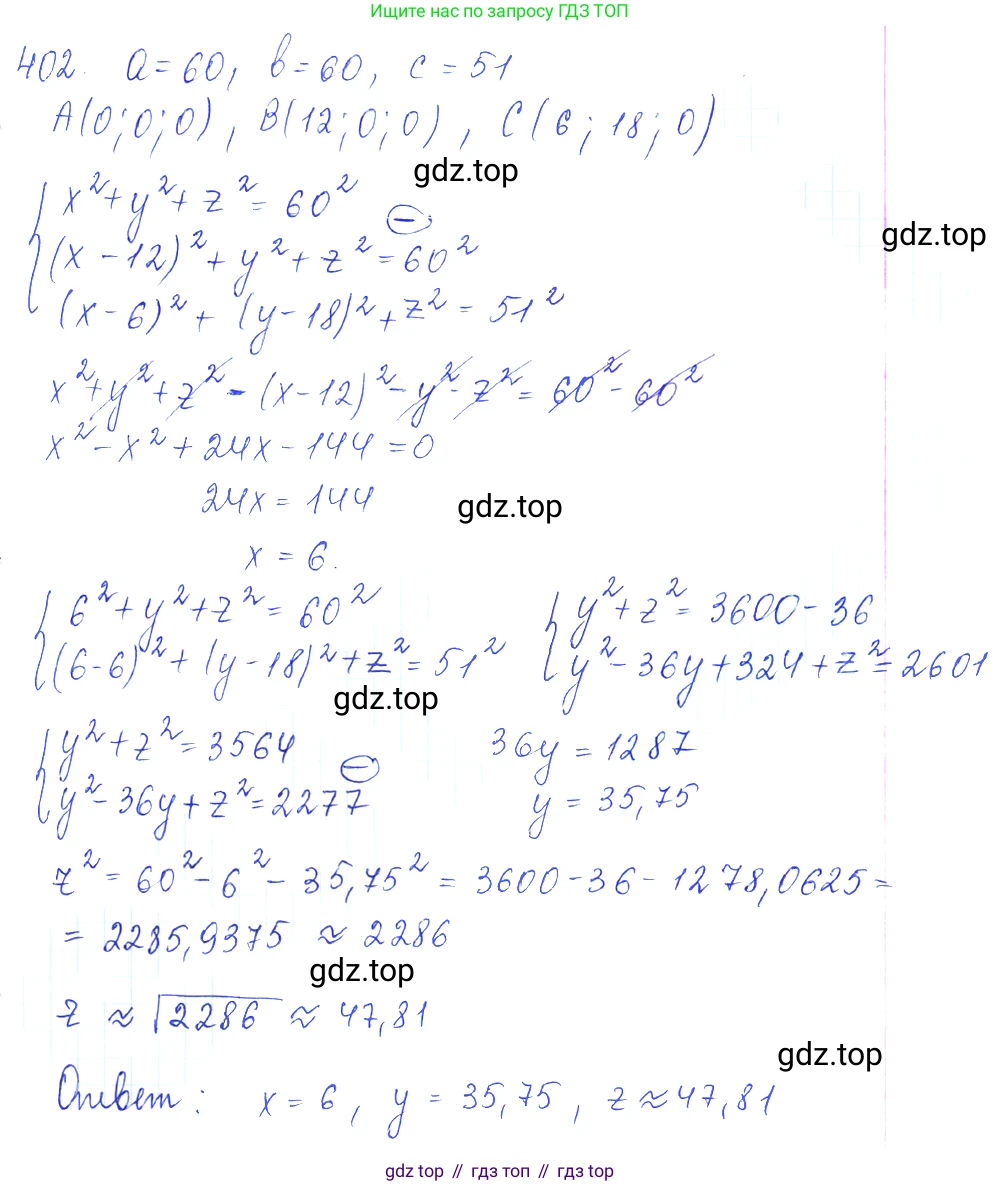 Ищите нас по запросу ГДЗ ТОП
402. a = 60, b = 60, c = 51
A(0;0;0), B(12;0;0), C(6;18;0)
gdz.top
x² + y² + z² = 60²
gdz.top
(x - 12)² + y² + z² = 60²
(x - 6)² + (y - 18)² + z² = 51²
x² + y² + z² - (x - 12)² - y² - z² = 60² - 60²
x² - x² + 24x - 144 = 0
24x = 144
gdz.top
x = 6.
6² + y² + z² = 60²
(6 - 6)² + (y - 18)² + z² = 51²
y² + z² = 3600 - 36
y² - 36y + 324 + z² = 2601
gdz.top
y² + z² = 3564
y² - 36y + z² = 2277
36y = 1287
y = 35,75
z² = 60² - 6² - 35,75² = 3600 - 36 - 1278,0625 =
= 2285,9375 ≈ 2286
gdz.top
z ≈ √2286 ≈ 47,81
gdz.top
Ответ: x = 6, y = 35,75, z ≈ 47,81
gdz top // гдз топ // гдз top